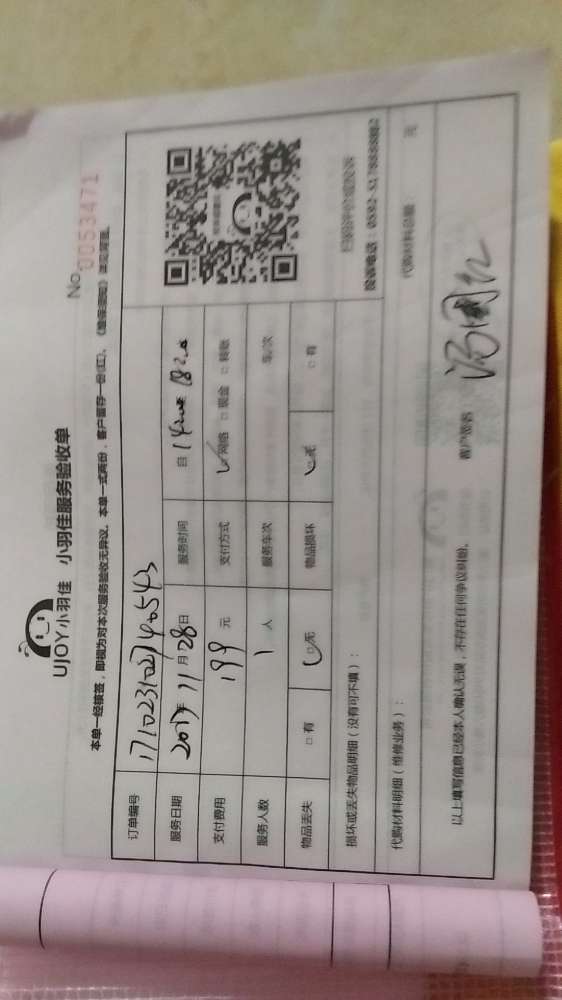 No. 0053471
UJOY小羽佳 小羽佳服务验收单
本单一经核签，即视为对本次服务验收无异议。本单一式两份，客户留存一份(红)。《维保须知》详见背面。
订单编号 171023102740543
服务日期 2017年11月28日 服务时间 自 14:00 18:20
支付费用 199 元 支付方式 ☑网络 □现金 □转账
服务人数 1 人 服务车次 车/次
物品丢失 □有 ☑无 物品损坏 ☑无 □有
损坏或丢失物品明细（没有可不填）：
扫码评价或投诉
代购材料明细（维修业务）： 代购材料总额： 元
以上填写信息已经本人确认无误，不存在任何争议纠纷。 客户签名